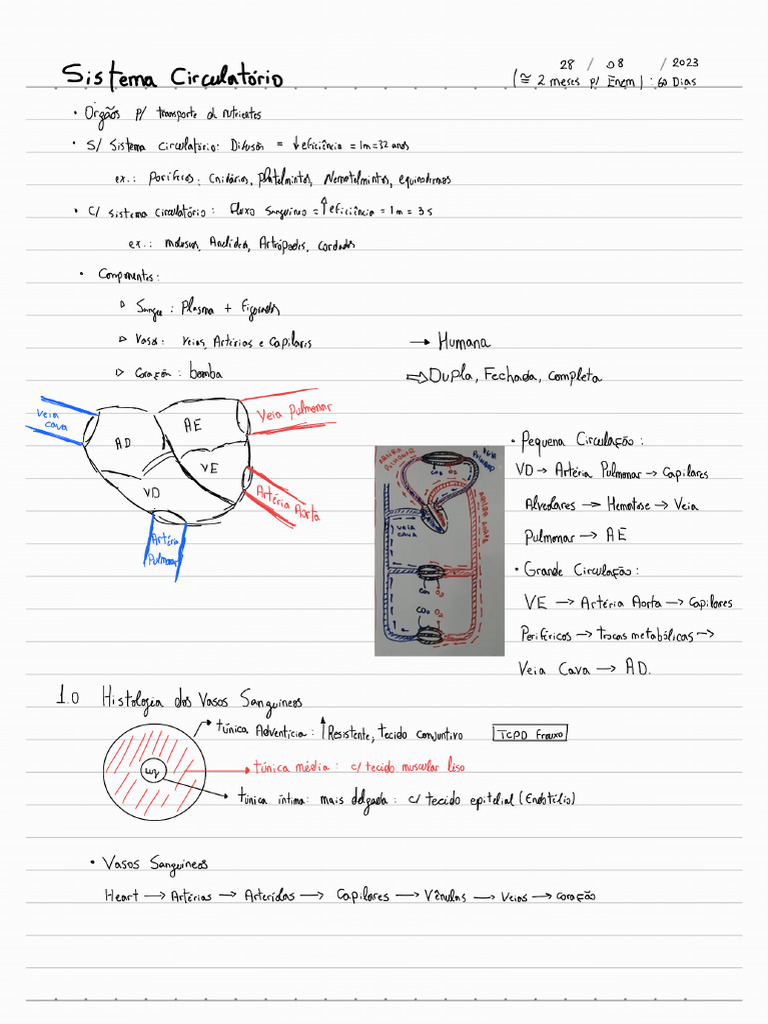 Sistema Circulatório
28 / 08 / 2023
(≅ 2 meses p/ Enem) : 60 Dias
• Órgãos p/ transporte d nutrientes
• S/ Sistema circulatório: Difusão = ↓ eficiência = 1m = 32 anos
ex.: Poríferos, Cnidários, platelmintos, Nematelmintos, equinodermos
• C/ sistema circulatório: Fluxo Sanguíneo = ↑ eficiência = 1m = 3s
ex.: moluscos, Anelídeos, Artrópodes, cordados
• Componentes:
▷ Sangue : Plasma + Figurados
▷ Vasos: veias, Artérias e Capilares
▷ Coração : bomba
→ Humana
⇨ Dupla, Fechada, completa
Veia cava
AD
AE
VE
VD
Veia Pulmonar
Artéria Aorta
Artéria Pulmonar
ARTÉRIA PULMONAR
VEIA PULMONAR
CO₂ O₂
VEIA CAVA
ARTÉRIA AORTA
CO₂ O₂
CO₂ O₂
• Pequena Circulação:
VD → Artéria Pulmonar → Capilares
Alveolares → Hematose → Veia
Pulmonar → AE
• Grande Circulação:
VE → Artéria Aorta → Capilares
Periféricos → trocas metabólicas →
Veia Cava → AD.
1.0 Histologia dos Vasos Sanguíneos
túnica Adventícia: ↑ Resistente, tecido conjuntivo
TCPD Frouxo
túnica média: c/ tecido muscular liso
luz
túnica íntima: mais delgada: c/ tecido epitelial (Endotélio)
• Vasos Sanguíneos
Heart → Artérias → Arteríolas → Capilares → Vênulas → Veias → coração